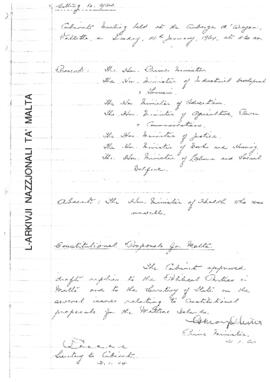 Cabinet Meeting held at the Auberge d'Aragon,
Valletta, on Sunday, January, 1964, at
Present: The Hon. Prime Minister
The Hon. Minister of Industrial Development
& Tourism
The Hon Minister of Education
The Hon. Minister of Agriculture, Power
& Communications
The Hon. Minister of Justice
The Hon. Minister of Works and Housing
The Hon. Minister of Labour and Social
Welfare.
Absent: The Hon. Minister of Health who was
unwell.
Constitutional Proposals for Malta.
The Cabinet approved
draft replies to the Political Parties in
Malta and to the Secretary of State on the
several issues relating to Constitutional
proposals for the Maltese Islands.
Prime Minister.
Secretary to Cabinet
L-ARKIVJI NAZZJONALI TA' MALTA